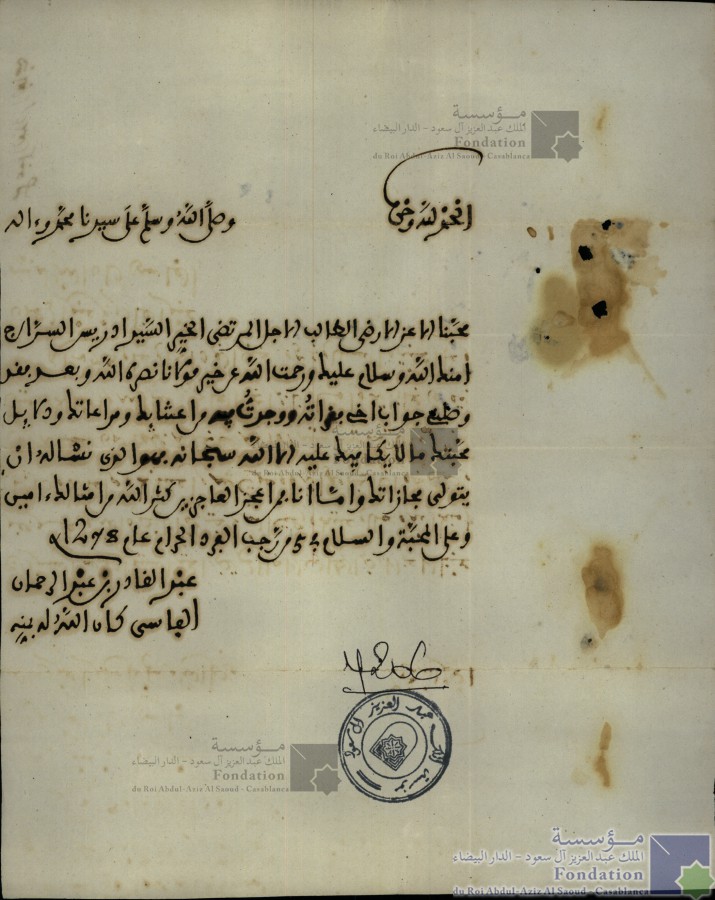 مؤسسة
الملك عبد العزيز آل سعود - الدار البيضاء
Fondation
du Roi Abdul-Aziz Al Saoud - Casablanca
الحمد لله وحده
وصلى الله وسلم على سيدنا محمد وءاله
محبنا الاعز الارضى الطالب الاجل المرتضى الخير السيد ادريس السراج
امنك الله وسلام عليك ورحمت الله عن خير مولانا نصره الله وبعد فقد
وصلنا جواب اخي ووجدت من اعتنائك ومراعاتك ودلايل
محبتك ما لا يكافيك عليه الا الله سبحانه فهو الذي نسئاله ان
يتولى مجازاتك وامثالك ءامين
وعلى المحبة والسلام في من رجب الفرد الحرام عام
عبد القادر بن عبد الرحمان
الفاسي كان الله له بمنه
مؤسسة الملك عبد العزيز آل سعود
مؤسسة
الملك عبد العزيز آل سعود - الدار البيضاء
Fondation
du Roi Abdul-Aziz Al Saoud - Casablanca
مؤسسة
الملك عبد العزيز آل سعود - الدار البيضاء
Fondation
du Roi Abdul-Aziz Al Saoud - Casablanca